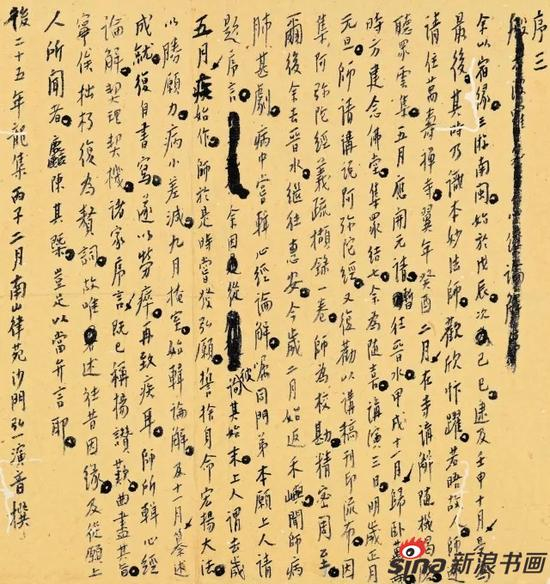 序三
心經論解
余以宿緣三游南閩始於戊辰次己巳逮及壬申十月是
最後其時乃識本妙法師歡欣忭躍若晤故人
請住萬壽禪寺翼年癸酉二月在寺講解隨機羯
聽眾雲集五月應開元請暫住晉水甲戌十一月歸臥萬
時方建念佛堂集眾結七余為隨喜講演三日明歲正月
元旦師請講說阿彌陀經又復勸以講稿刊印流布因
集阿彌陀經義疏擷錄一卷師為校勘精密周至
爾後余去晉水繼往惠安今歲二月始返禾嶼聞師病
肺甚劇病中嘗輯心經論解屬同門弟本願上人請
題序言余因是從彼詢其始末上人謂去歲
五月疾始作師於是時嘗發弘願誓捨身命宏揚大法
以勝願力病小差減九月掩室始輯論解及十一月纂述
成就復自書寫遂以勞瘁再致疾耳師所輯心經
論解契理契機諸家序言既已稱揚讚歎曲盡其旨
寧俟拙朽復為贅詞故唯述往昔因緣及從願上
人所聞者麤陳其槩豈足以當弁言耶
後二十五年龍集丙子二月南山律苑沙門弘一演音撰
sina 新浪书画